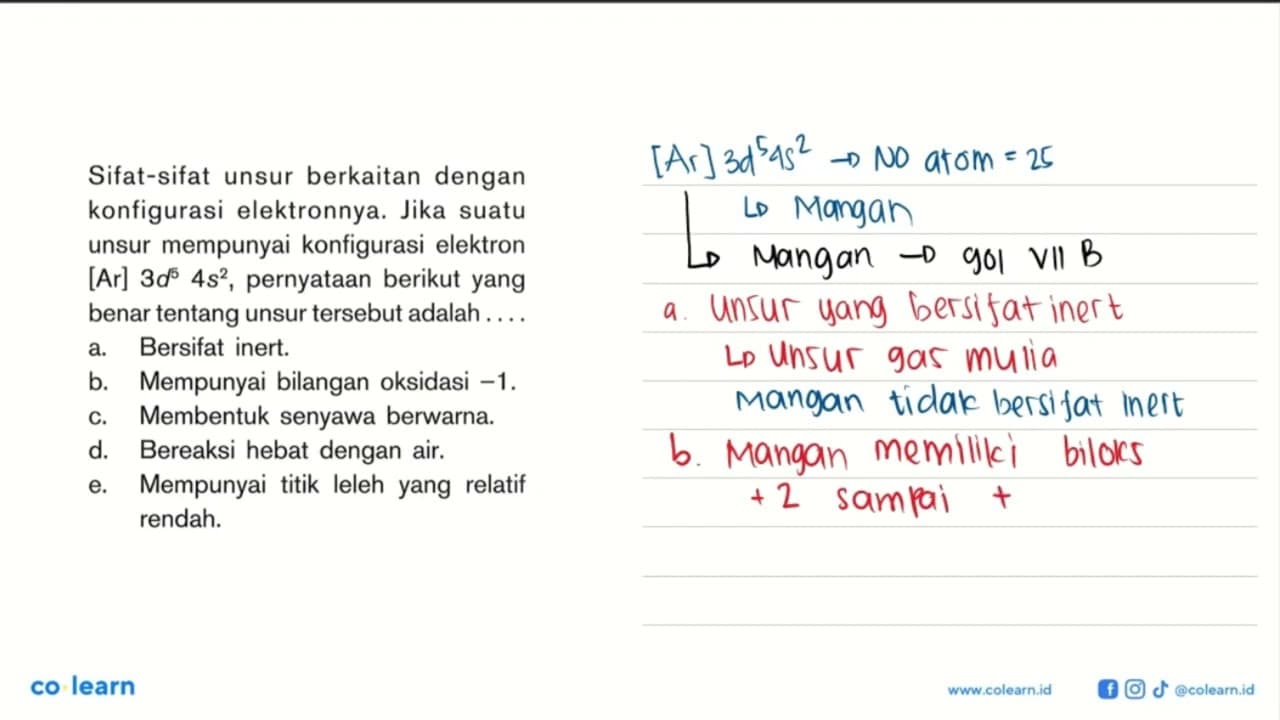 Sifat-sifat unsur berkaitan dengan
konfigurasi elektronnya. Jika suatu
unsur mempunyai konfigurasi elektron
[Ar] 3d⁵ 4s², pernyataan berikut yang
benar tentang unsur tersebut adalah . . . .
a. Bersifat inert.
b. Mempunyai bilangan oksidasi −1.
c. Membentuk senyawa berwarna.
d. Bereaksi hebat dengan air.
e. Mempunyai titik leleh yang relatif
rendah.
[Ar] 3d⁵4s² → NO atom = 25
↳ Mangan
↳ Mangan → gol VII B
a. Unsur yang bersifat inert
↳ Unsur gas mulia
Mangan tidak bersifat inert
b. Mangan memiliki biloks
+2 sampai +
co learn
www.colearn.id
@colearn.id